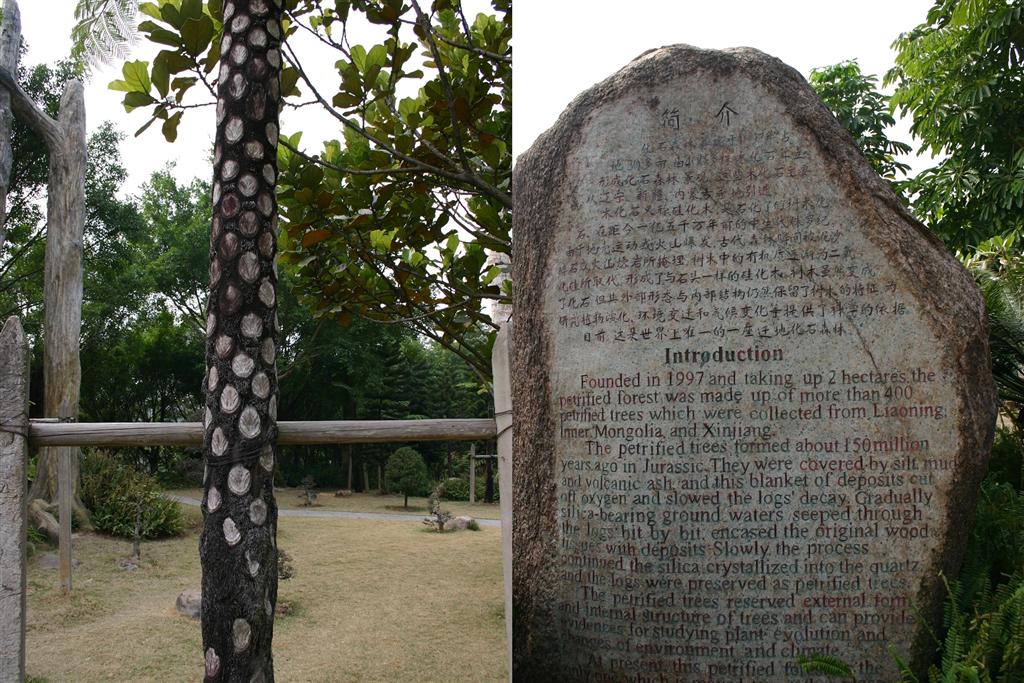 简 介
形成化石森林
从辽宁、新疆、内蒙古等地引进
木化石又称硅化木
石。在距今一亿五千万年前的
运动或火山爆发,古代森林
火山熔岩所掩埋,树木中的有机质逐渐为二氧
化硅所取代,形成了与石头一样的硅化木。树木虽然变成
了化石,但其外部形态与内部结构仍然保留了树木的特征,为
研究植物演化、环境变迁和气候变化等提供了科学的依据。
目前,这是世界上唯一的一座迁地化石森林
Introduction
Founded in 1997 and taking up 2 hectares, the
petrified forest was made up of more than 400
petrified trees which were collected from Liaoning,
Inner Mongolia, and Xinjiang.
The petrified trees formed about 150 million
years ago in Jurassic. They were covered by silt, mud
and volcanic ash, and this blanket of deposits cut
off oxygen and slowed the logs' decay. Gradually
silica-bearing ground waters seeped through
the logs, bit by bit, encased the original wood
with deposits. Slowly, the process
continued, the silica crystallized into the quartz,
and the logs were preserved as petrified trees.
The petrified trees reserved external form
and internal structure of trees and can provide
evidences for studying plant evolution and
of environment and climate.
At present, this petrified the